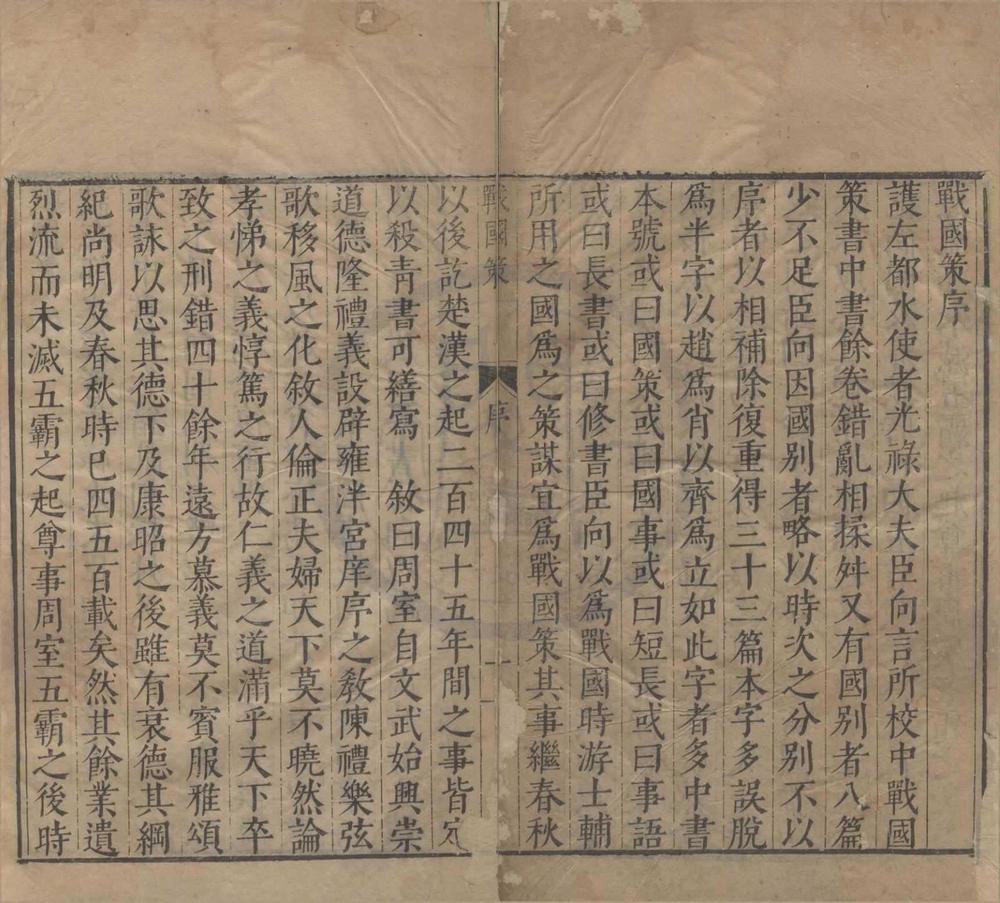 戰國策序
護左都水使者光祿大夫臣向言所校中戰國
策書中書餘卷錯亂相揉舛又有國別者八篇
少不足臣向因國別者略以時次之分別不以
序者以相補除復重得三十三篇本字多誤脫
爲半字以趙爲肖以齊爲立如此字者多中書
本號或曰國策或曰國事或曰短長或曰事語
或曰長書或曰修書臣向以爲戰國時游士輔
所用之國爲之策謀宜爲戰國策其事繼春秋
戰國策 序 一
以後訖楚漢之起二百四十五年間之事皆定
以殺靑書可繕寫 敘曰周室自文武始興崇
道德隆禮義設辟雍泮宮庠序之敎陳禮樂弦
歌移風之化敘人倫正夫婦天下莫不曉然論
孝悌之義惇篤之行故仁義之道滿乎天下卒
致之刑錯四十餘年遠方慕義莫不賓服雅頌
歌詠以思其德下及康昭之後雖有衰德其綱
紀尚明及春秋時已四五百載矣然其餘業遺
烈流而未滅五霸之起尊事周室五霸之後時